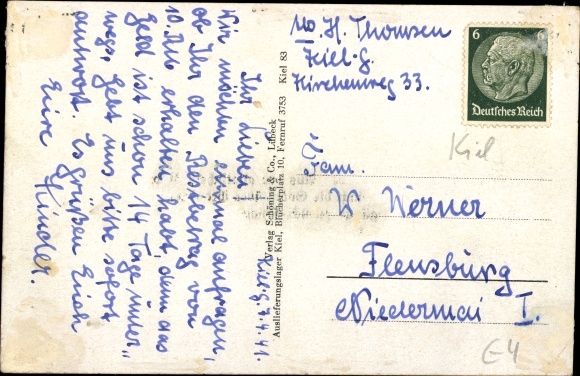 Kiel-G., 7.4.41.
Ihr Lieben!
Wir möchten einmal anfragen,
ob Ihr den Restbetrag von
10.RM erhalten habt, denn das
Geld ist schon 14 Tage unter-
wegs, gebt uns bitte sofort
Antwort. Es grüßen Euch
Eure Kinder.
Verlag Schöning & Co., Lübeck
Auslieferungslager Kiel, Blücherplatz 10, Fernruf 3753 Kiel 83
Abs. H. Thomsen
Kiel-G.
Kirchenweg 33.
6 6
Deutsches Reich
Kiel
Fam.
W Werner
Flensburg
Niedermai I.
E4